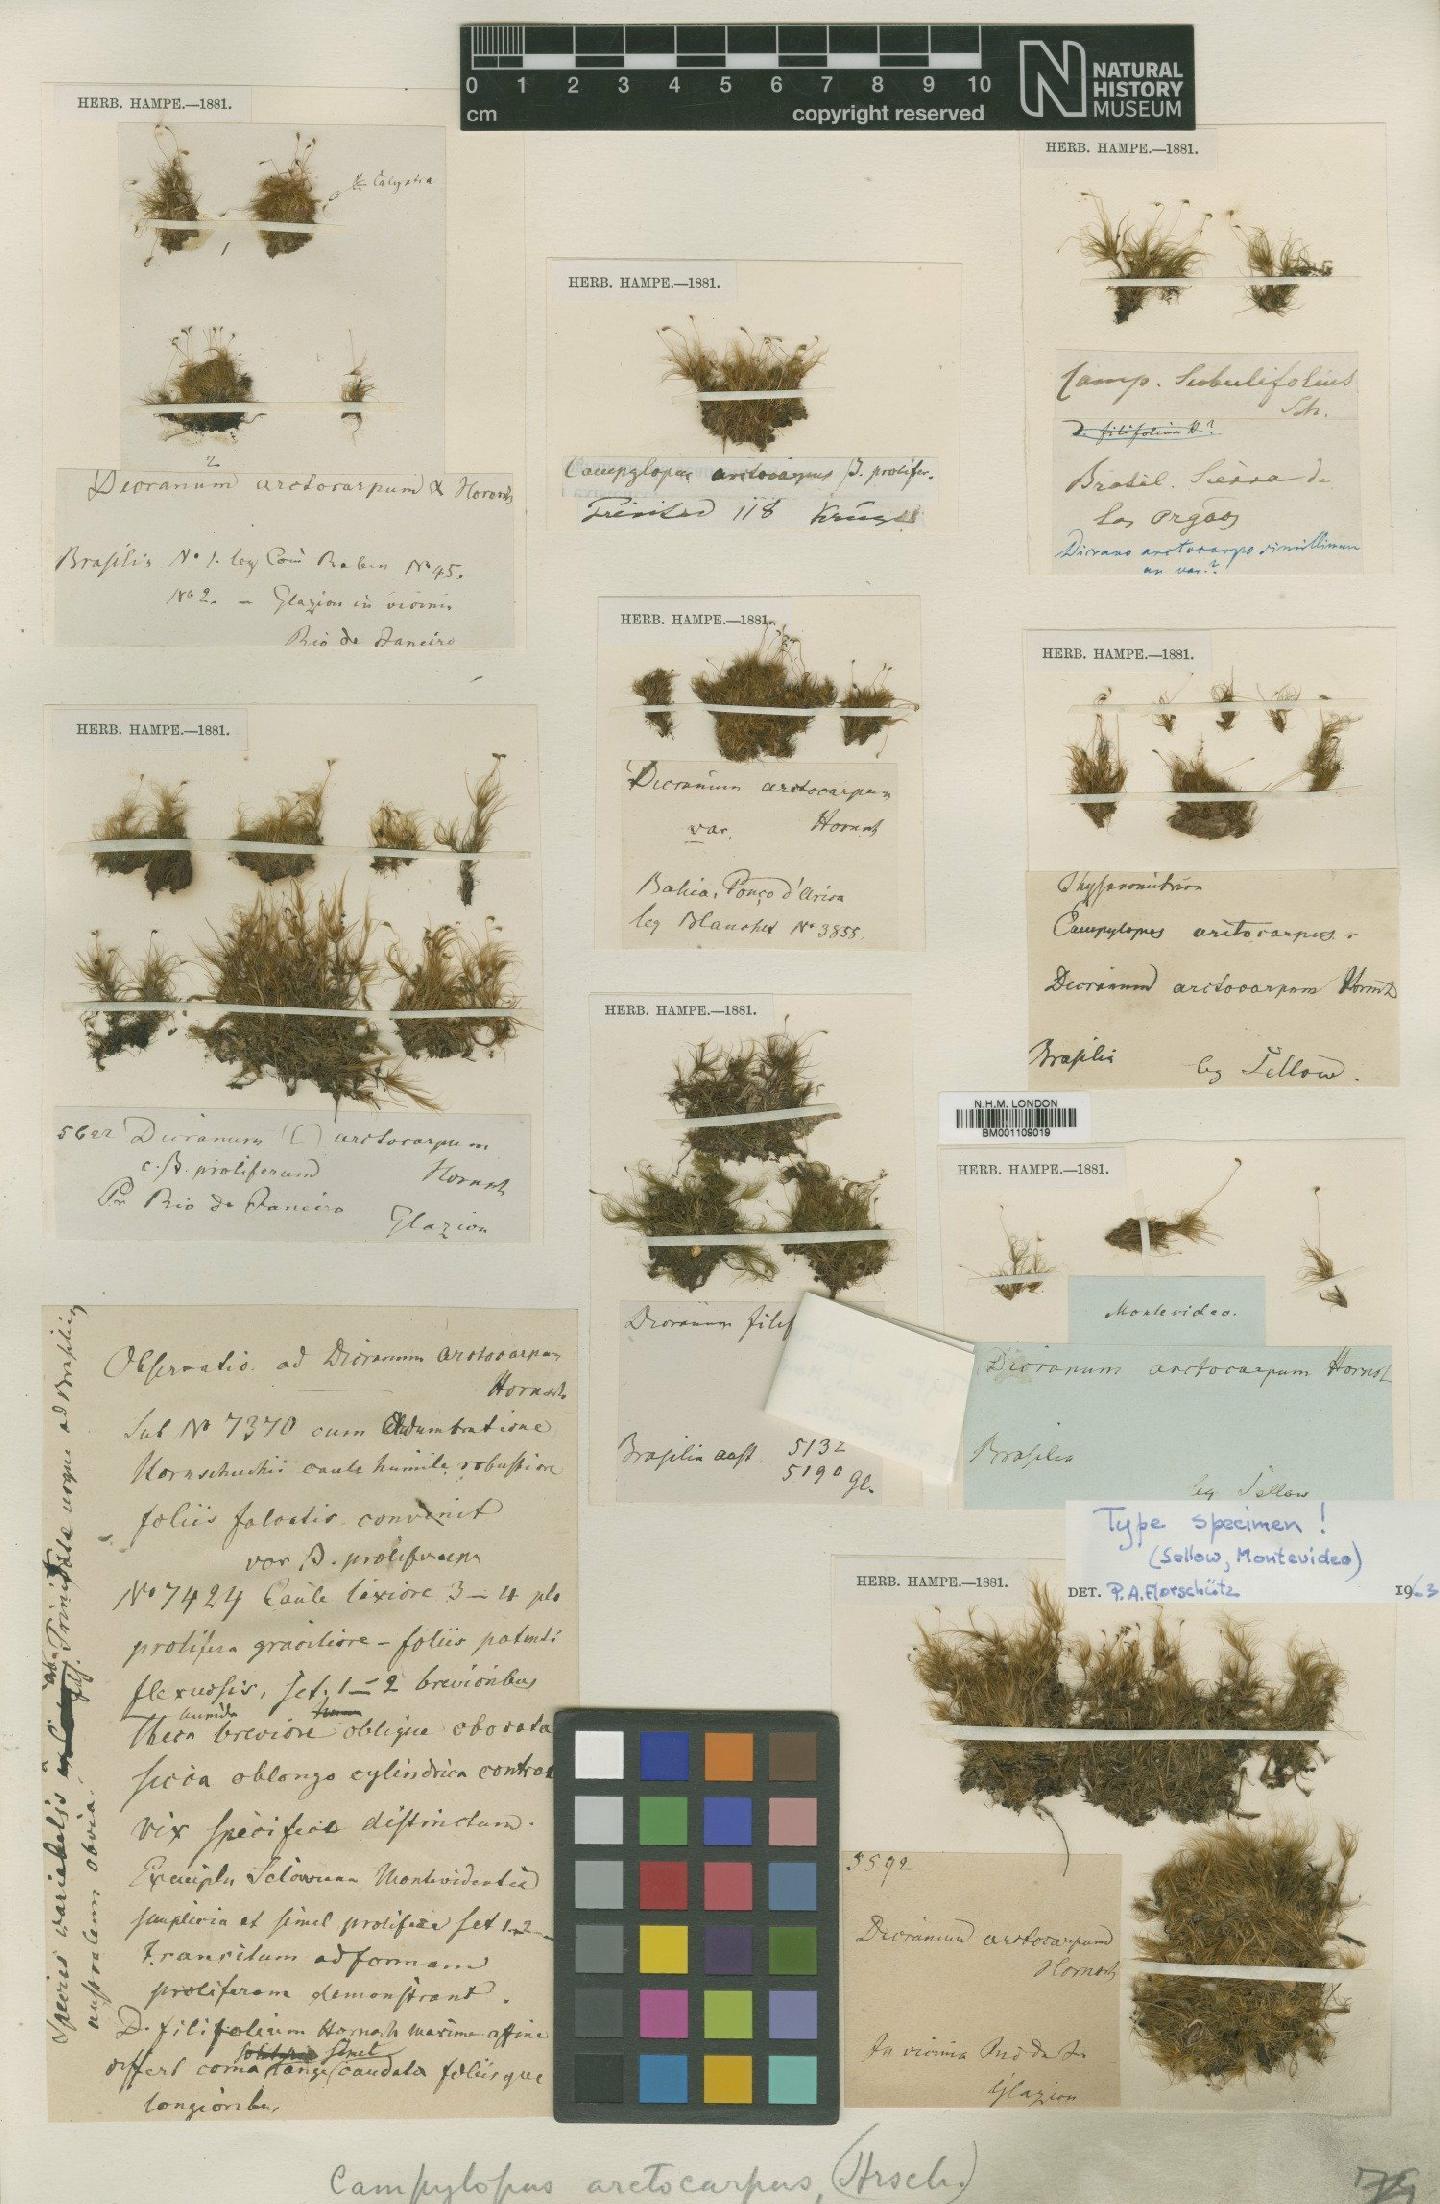 0 1 2 3 4 5 6 7 8 9 10
cm
copyright reserved
NATURAL
HISTORY
MUSEUM
HERB. HAMPE.—1881.
Calyptra
1
2
Dicranum arctocarpum α Hornsch
Brasilia No 1. leg Com Raben No 45.
No 2. — Glaziou in vicinis
Rio de Janeiro
HERB. HAMPE.—1881.
Campylopus arctocarpus β. prolifer.
Trinidad 118 Krüger
HERB. HAMPE.—1881.
Camp. subulifolius
Sch.
D. filifolium H?
Brasil. Sierra de
los Orgãos
Dicrano arctocarpo simillimum
an var.?
HERB. HAMPE.—1881.
Dicranum arctocarpum
var. Hornsch
Bahia,
leg Blanchet No 3855.
HERB. HAMPE.—1881.
Thysanomitrion
Campylopus arctocarpus.
Dicranum arctocarpum Hornsch
Brasilia
leg Sellow.
HERB. HAMPE.—1881.
Dicranum arctocarpum
c. β. proliferum Hornsch
Pr Rio de Janeiro
Glaziou
HERB. HAMPE.—1881.
Dicranum filif
Brasilia aust. 5132
5190 Gl.
N.H.M. LONDON
BM001109019
HERB. HAMPE.—1881.
Montevideo.
Dicranum arctocarpum Hornsch
Brasilia
leg Sellow
Type specimen!
(Sellow, Montevideo)
DET. P.A. Florschütz 1963
Observatio ad Dicranum arctocarpum
Hornsch
Sub No 7370 cum adumbratione
Hornschuchii caule humile robustiore
foliis falcatis convenit
var β. proliferum
No 7424 Caule laxiore 3–4 plo
prolifera graciliore – foliis patenti
flexuosis, set. 1–2 brevioribus
humida
theca breviore oblique obovata
sicca oblongo cylindrica
vix specifice distinctum.
Exempla Selowiana Montevidentia
simplicia et simel prolifera set 1–2
transitum ad formam
proliferam demonstrant.
D. filifolium Hornsch maxime affine
simel
differt coma longe caudata foliisque
longioribus.
Species variabilis Trinitata usque ad Brasiliam
australem obvia.
HERB. HAMPE.—1881.
5592
Dicranum arctocarpum
Hornsch
In vicinia Rio de J.
Glaziou
Campylopus arctocarpus, (Hrsch.)